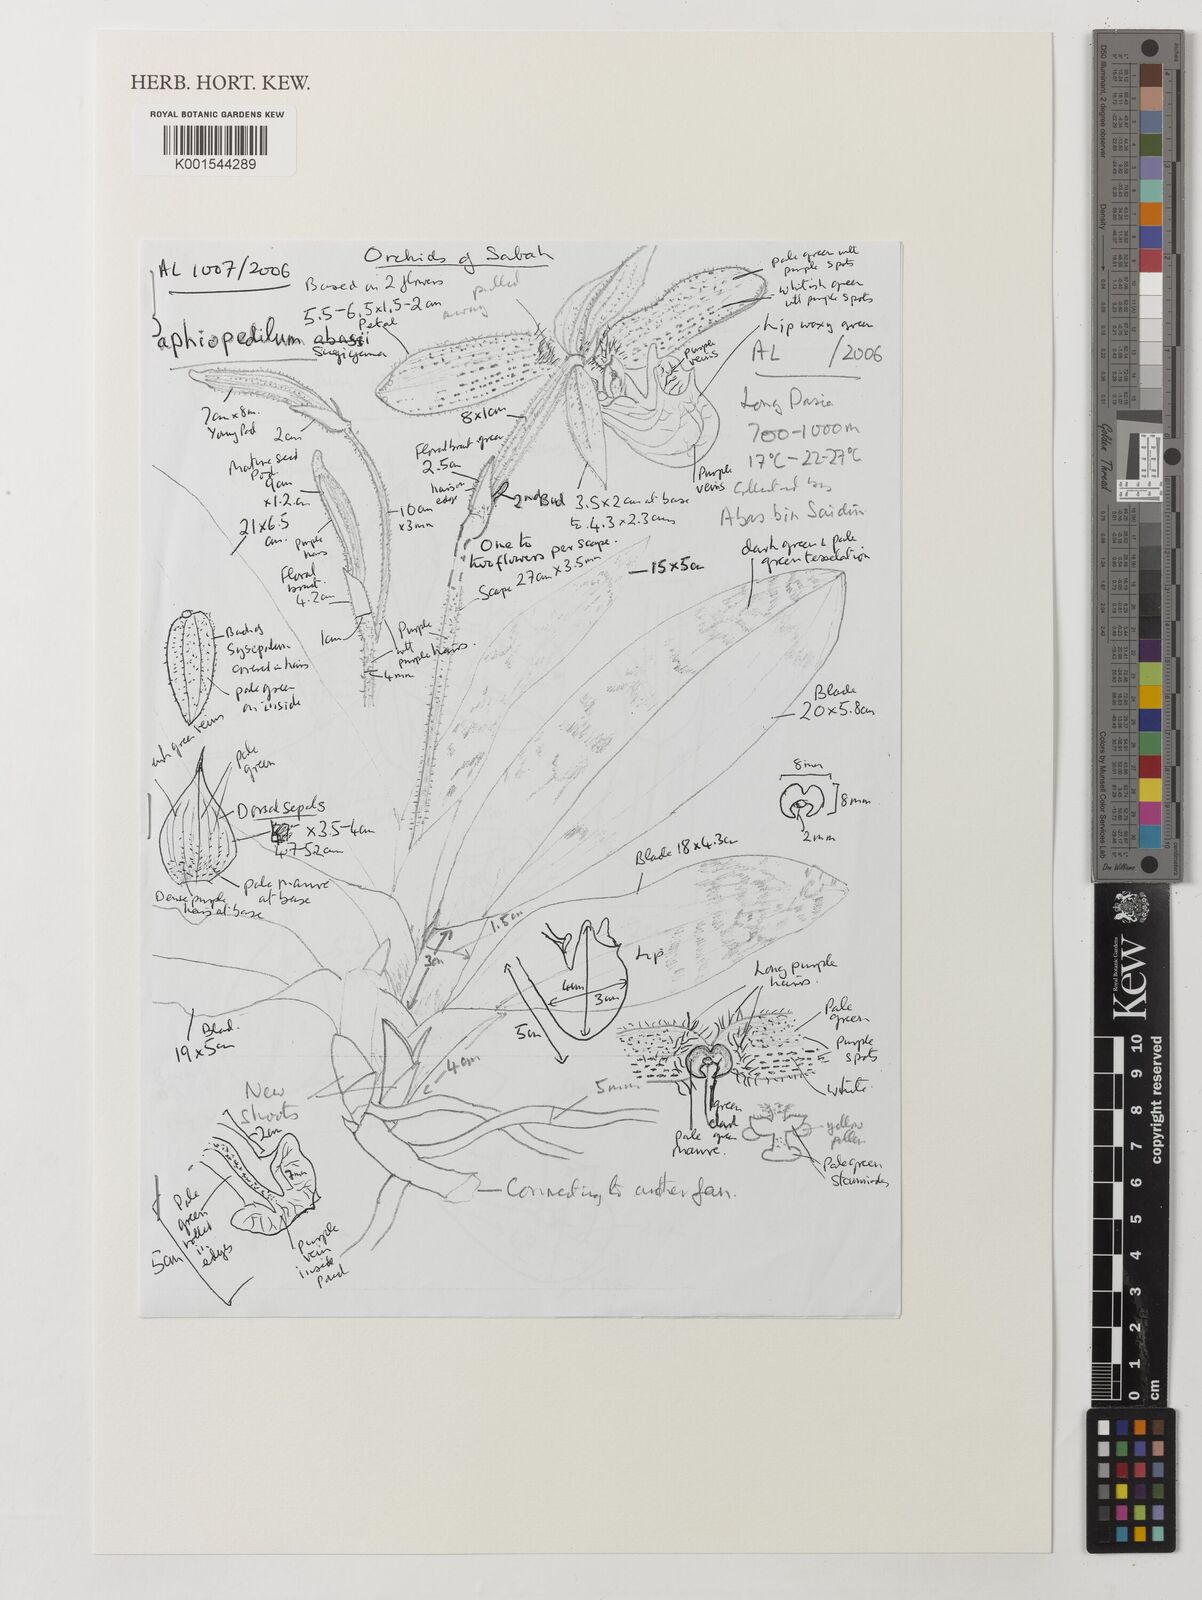 HERB. HORT. KEW.
ROYAL BOTANIC GARDENS KEW
K001544289
AL 1007/2006
Orchids of Sabah
Based on 2 flowers
5.5-6.5x1.5-2cm
Petal
pulled
away
aphiopedilum abasii
Sugiyama
pale green with
purple spots
Whitish green
with purple spots
Lip waxy green
AL /2006
Purple
veins
Long Pasia
700-1000m
17°C-22-27°C
Collected by
Abas bin Saidin
7cm x 8m.
Young Pod
2cm
Mature seed
Pod
9cm
x1.2cm
21x6.5
cm.
8x1cm
Floral bract green
2.5cm
hairs on
edge
2nd Bud
3.5x2cm at base
to 4.3x2.3cms
Purple
veins
10cm
x3mm
One to
two flowers per scape.
Scape 27cm x3.5mm
Purple
hairs
Floral
bract.
4.2cm
1cm
Purple
with
purple hairs.
4mm
15x5cm
dark green & pale
green tesselation
Back of
Synsepalum
covered in hairs
pale green
on inside
green veins
Pale
green
Dorsal sepals
x3.5-4cm
4.7-5.2cm
Pale mauve
at base
Dense purple
hairs at base
Blade
20x5.8cm
8mm
8mm
2mm
Blade 18x4.3cm
1.5cm
3cm
Lip
4cm
3cm
5cm
Long purple
hairs.
Pale
green
Purple
spots
White
Blad.
19x5cm
4cm
New
Shoots
2cm
7mm
5mm
green
dark
Pale green
mauve.
yellow
pollen
Pale green
Staminodes
Connecting to another fan.
Pale
green
rolled
in
edges
5cm
Purple
vein
inside
Pouch
D50 Illuminant, 2 degree observer
Density
Golden Thread
Colors by Munsell Color Services Lab
inches
Royal Botanic Gardens
Kew
0 1 2 3 4 5 6 7 8 9 10
cm
copyright reserved